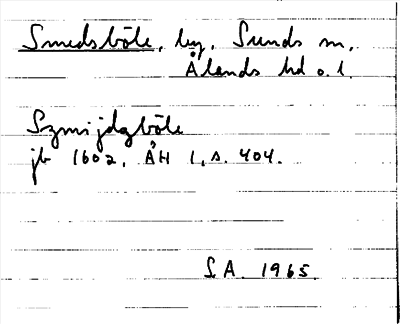 Smedsböle, by, Sunds sn,
Ålands hd o. l.
Szmijdzböle
jb 1602, ÅH 1, s. 404.
S A. 1965